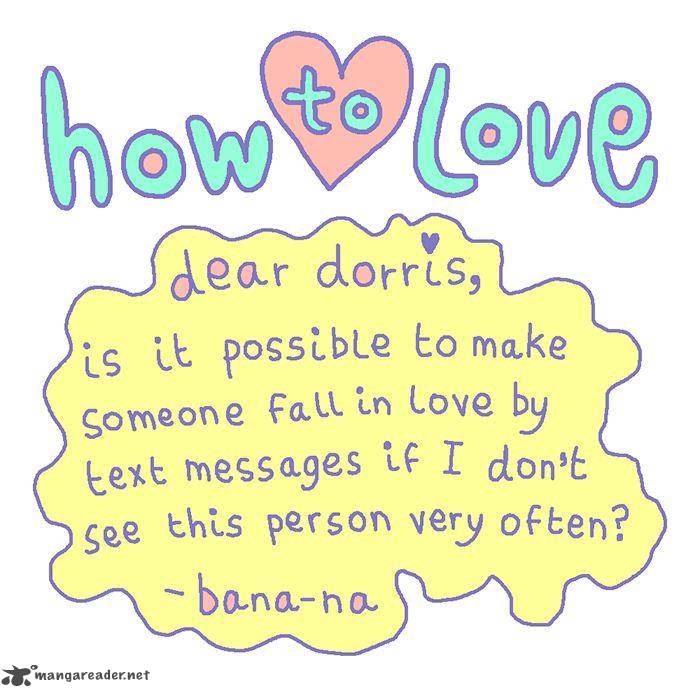 how to love
dear dorris,
is it possible to make
someone fall in love by
text messages if I don't
see this person very often?
-bana-na
mangareader.net